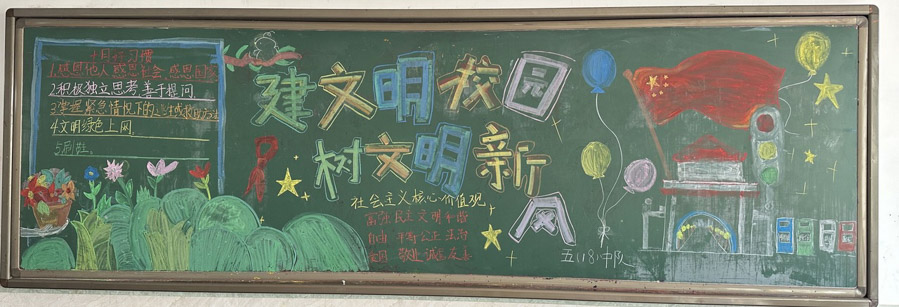 十月好习惯
1.感恩他人 感恩社会 感恩国家
2积极独立思考 善于提问
3掌握紧急情况下的
4文明绿色上网.
5刷鞋.
建文明校园
树文明新风
社会主义核心价值观
富强 民主 文明 和谐
自由 平等 公正 法治
爱国 敬业 诚信 友善
五(18)中队